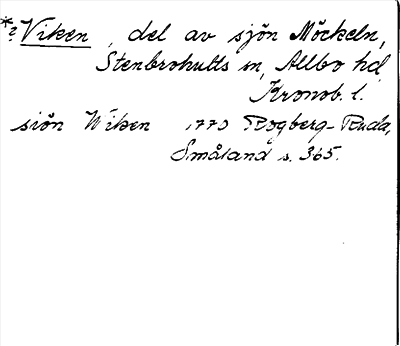 *? Viken, del av sjön Möckeln,
Stenbrohults sn, Allbo hd
Kronob. l.
siön Wiken 1770 Rogberg-Ruda,
Småland s. 365.